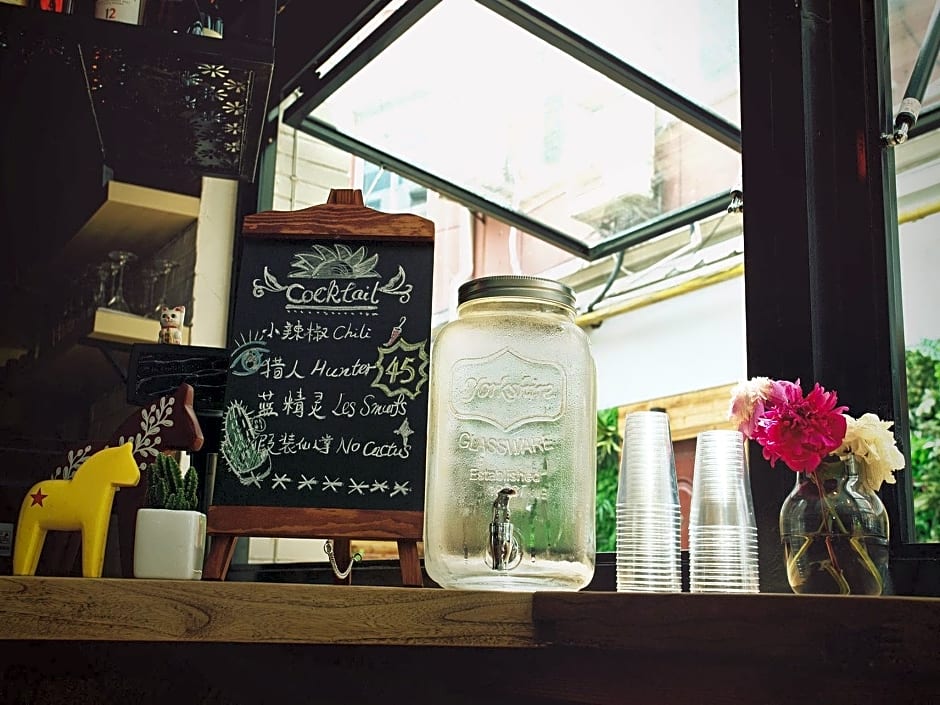 12
Cocktail
小辣椒 Chili
猎人 Hunter 45
蓝精灵 Les Smurfs
假装仙掌 No Cactus
Yorkshire
GLASSWARE
Established